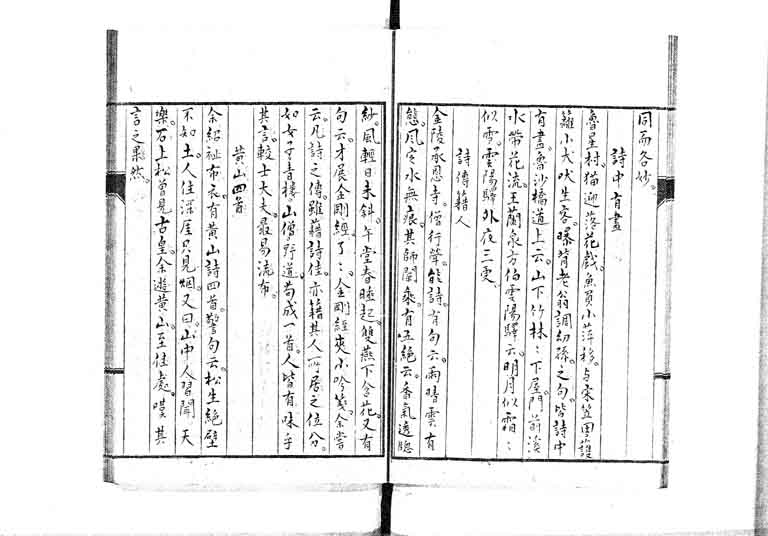 同而各妙。
詩中有畫
魯星村。猫迎落花戲。魚負小萍移。与宋笠田護
籬小犬吠生客。曝背老翁調幼孫。之句。皆詩中
有畫。魯沙橋道上云。山下竹林：下屋。門前溪
水帶花流。王蘭泉方伯雲陽驛云。明月似霜：
似雪。雲陽驛外夜三更。
詩傳藉人
金陵承恩寺。僧行肇。能詩。有句云。雨晴雲有
態。風定水無痕。其師闇乘。有五絶云。香氣透牕
紗。風輕日未斜。午堂春睡起。雙燕下含花。又有
句云。才展金剛經。了：。金剛經夾小吟箋。余嘗
云。凡詩之傳。雖藉詩佳。亦藉其人所居之位分。
如女子青樓。山僧野道。苟成一首。人皆有味乎
其言。較士大夫。最易流布。
黄山四首
余紹祉布衣。有黄山詩四首。警句云。松生絶壁
不知土。人住深崖只見烟。又曰山中人習聞天
樂。石上松曾見古皇。余遊黄山。至佳處。嘆其
言之果然。